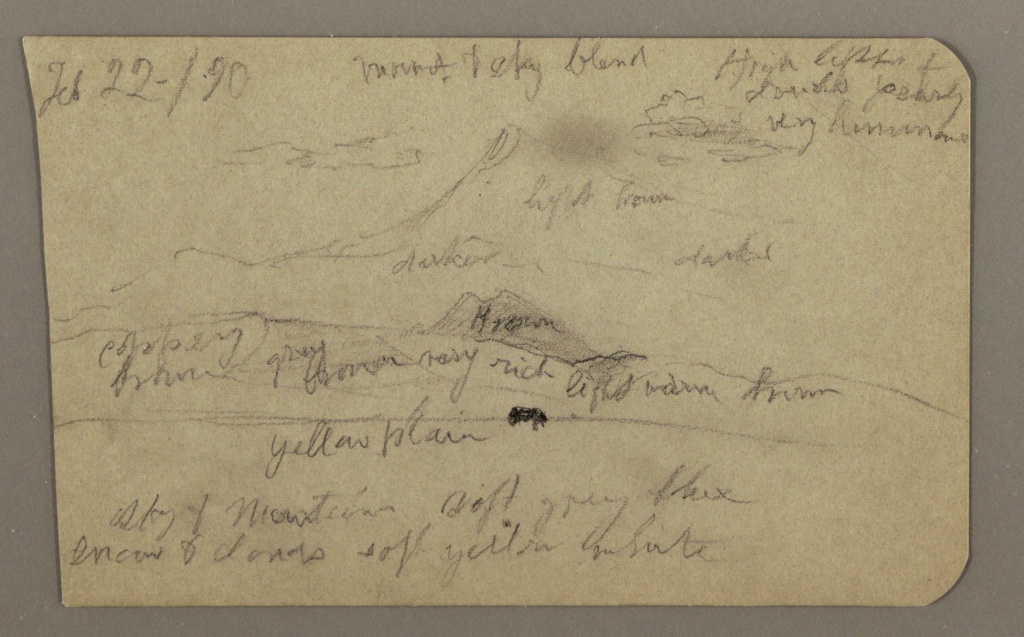 Feb 22-/90
mount & sky blend
High lights +
clouds pearly
very luminous
light brown
darker
darker
Brown
coppery
brown
gray
brown very rich
light warm brown
yellow plain
sky & Mountain soft grey blue
snow & clouds soft yellow white